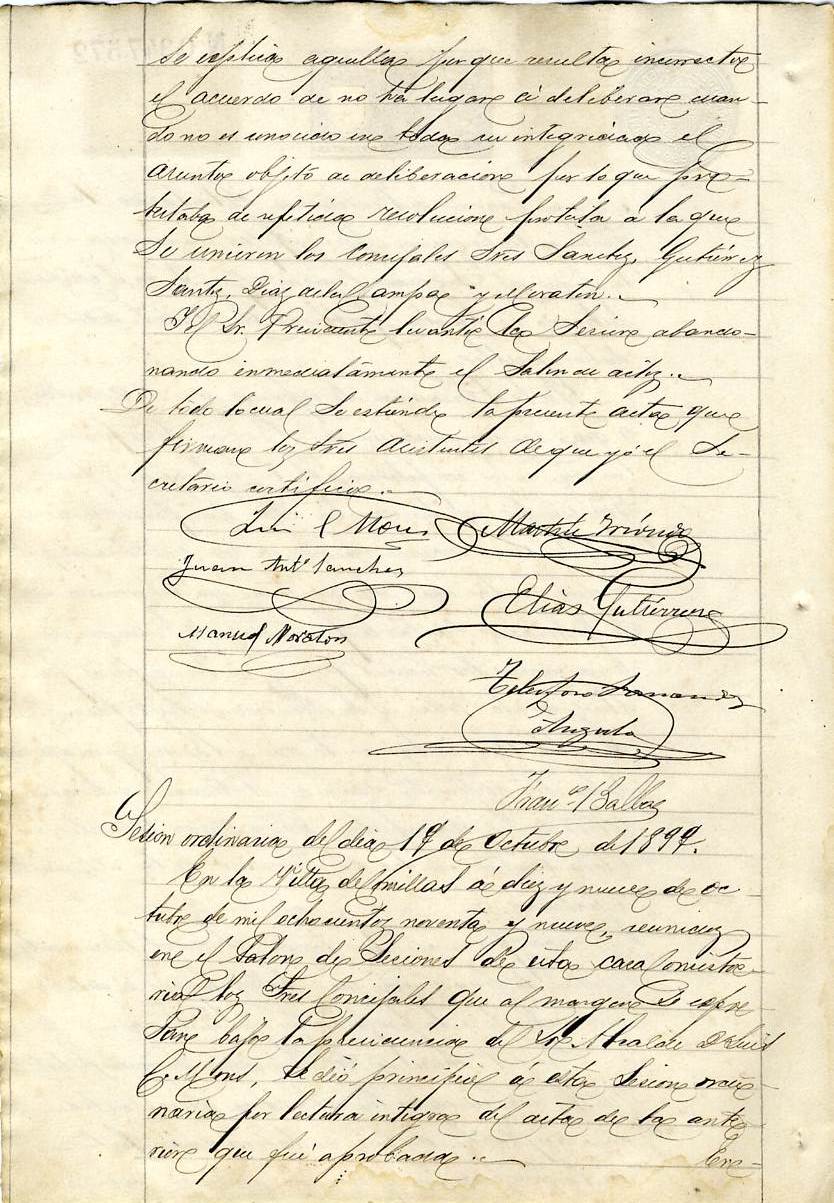 se esplica aquella por que resulta incorrecto
el acuerdo de no ha lugar á deliberar cuan-
do no es conocido en toda su integridad el
asunto objeto de deliberación por lo que pro-
testaba de repetida resolucion protesta á la que
se unieron los Concejales Sres Sanchez, Gutiérrez
Santos, Diaz de la Campa y Moraton.
El Sr. Presidente levantó la Sesion abando-
nando inmediatamente el Salon de actos.
De todo lo cual se estiende la presente acta que
firman los Sres asistentes de que yó el Se-
cretario certifico.
Luis C Mons
Juan Antº Sanchez
Elias Gutiérrez
Manuel Moraton
Telesforo Fernandez
Angulo
Franco Balbas
Sesion ordinaria del dia 19 de Octubre de 1899.
En la Villa de Comillas á diez y nueve de Oc-
tubre de mil ochocientos noventa y nueve, reunidos
en el Salon de Sesiones de esta casa Consisto-
rial los Sres Concejales que al margen se espre-
san bajo la presidencia del Sor Alcalde D. Luis
C. Mons, se dió principio á esta Sesion ordi-
naria por lectura integra del acta de la ante-
rior que fué aprobada.
En-